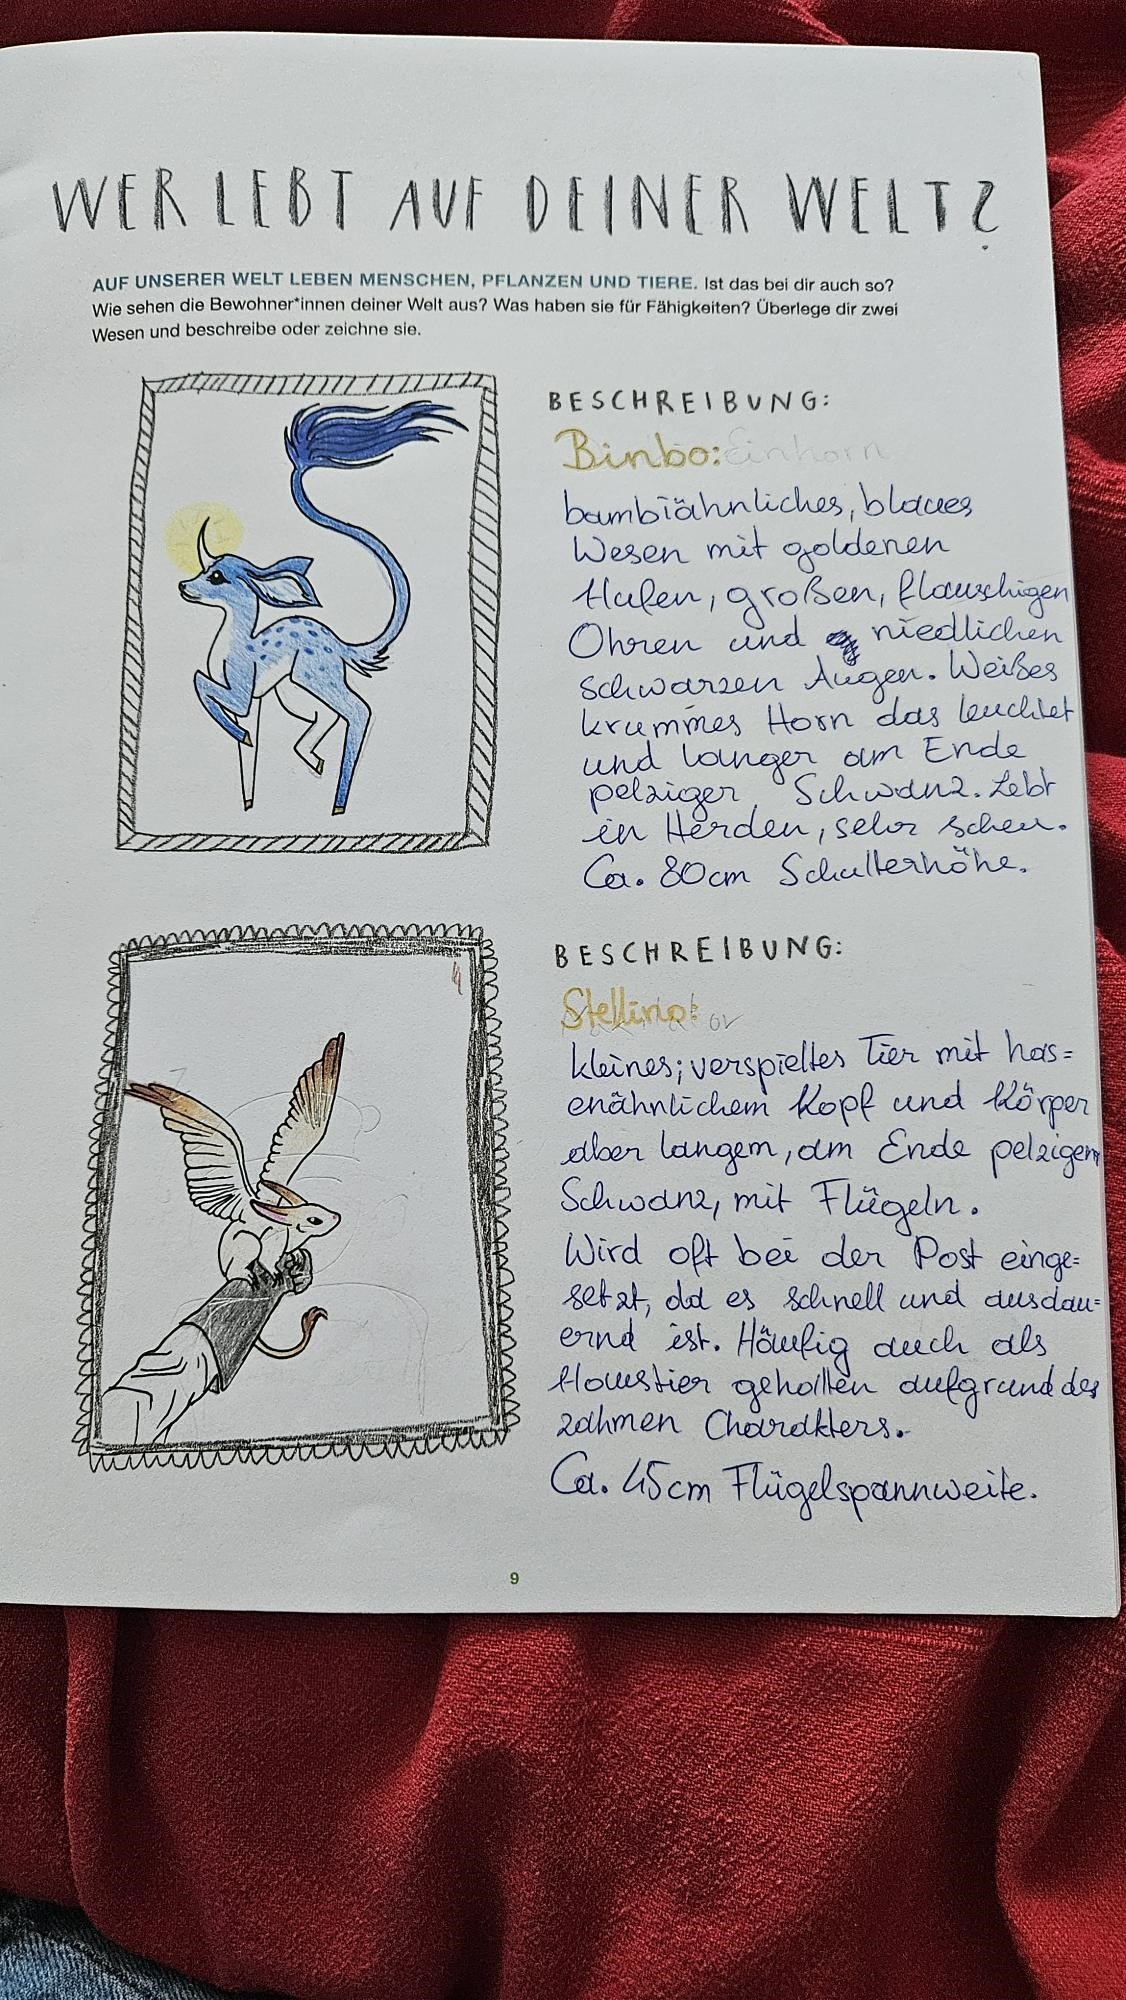 WER LEBT AUF DEINER WELT?
AUF UNSERER WELT LEBEN MENSCHEN, PFLANZEN UND TIERE. Ist das bei dir auch so?
Wie sehen die Bewohner*innen deiner Welt aus? Was haben sie für Fähigkeiten? Überlege dir zwei
Wesen und beschreibe oder zeichne sie.
BESCHREIBUNG:
Binbo: Einhorn
bambiähnliches, blaues
Wesen mit goldenen
Hufen, großen, flauschigen
Ohren und niedlichen
schwarzen Augen. Weißes
krummes Horn das leuchtet
und langer am Ende
pelziger Schwanz. Lebt
in Herden, sehr scheu.
Ca. 80cm Schulterhöhe.
BESCHREIBUNG:
Stellino:
kleines; verspieltes Tier mit has=
enähnlichem Kopf und Körper
aber langem, am Ende pelzigem
Schwanz, mit Flügeln.
Wird oft bei der Post einge=
setzt, da es schnell und ausdau=
ernd ist. Häufig auch als
Haustier gehalten aufgrund des
zahmen Charakters.
Ca. 45cm Flügelspannweite.
9